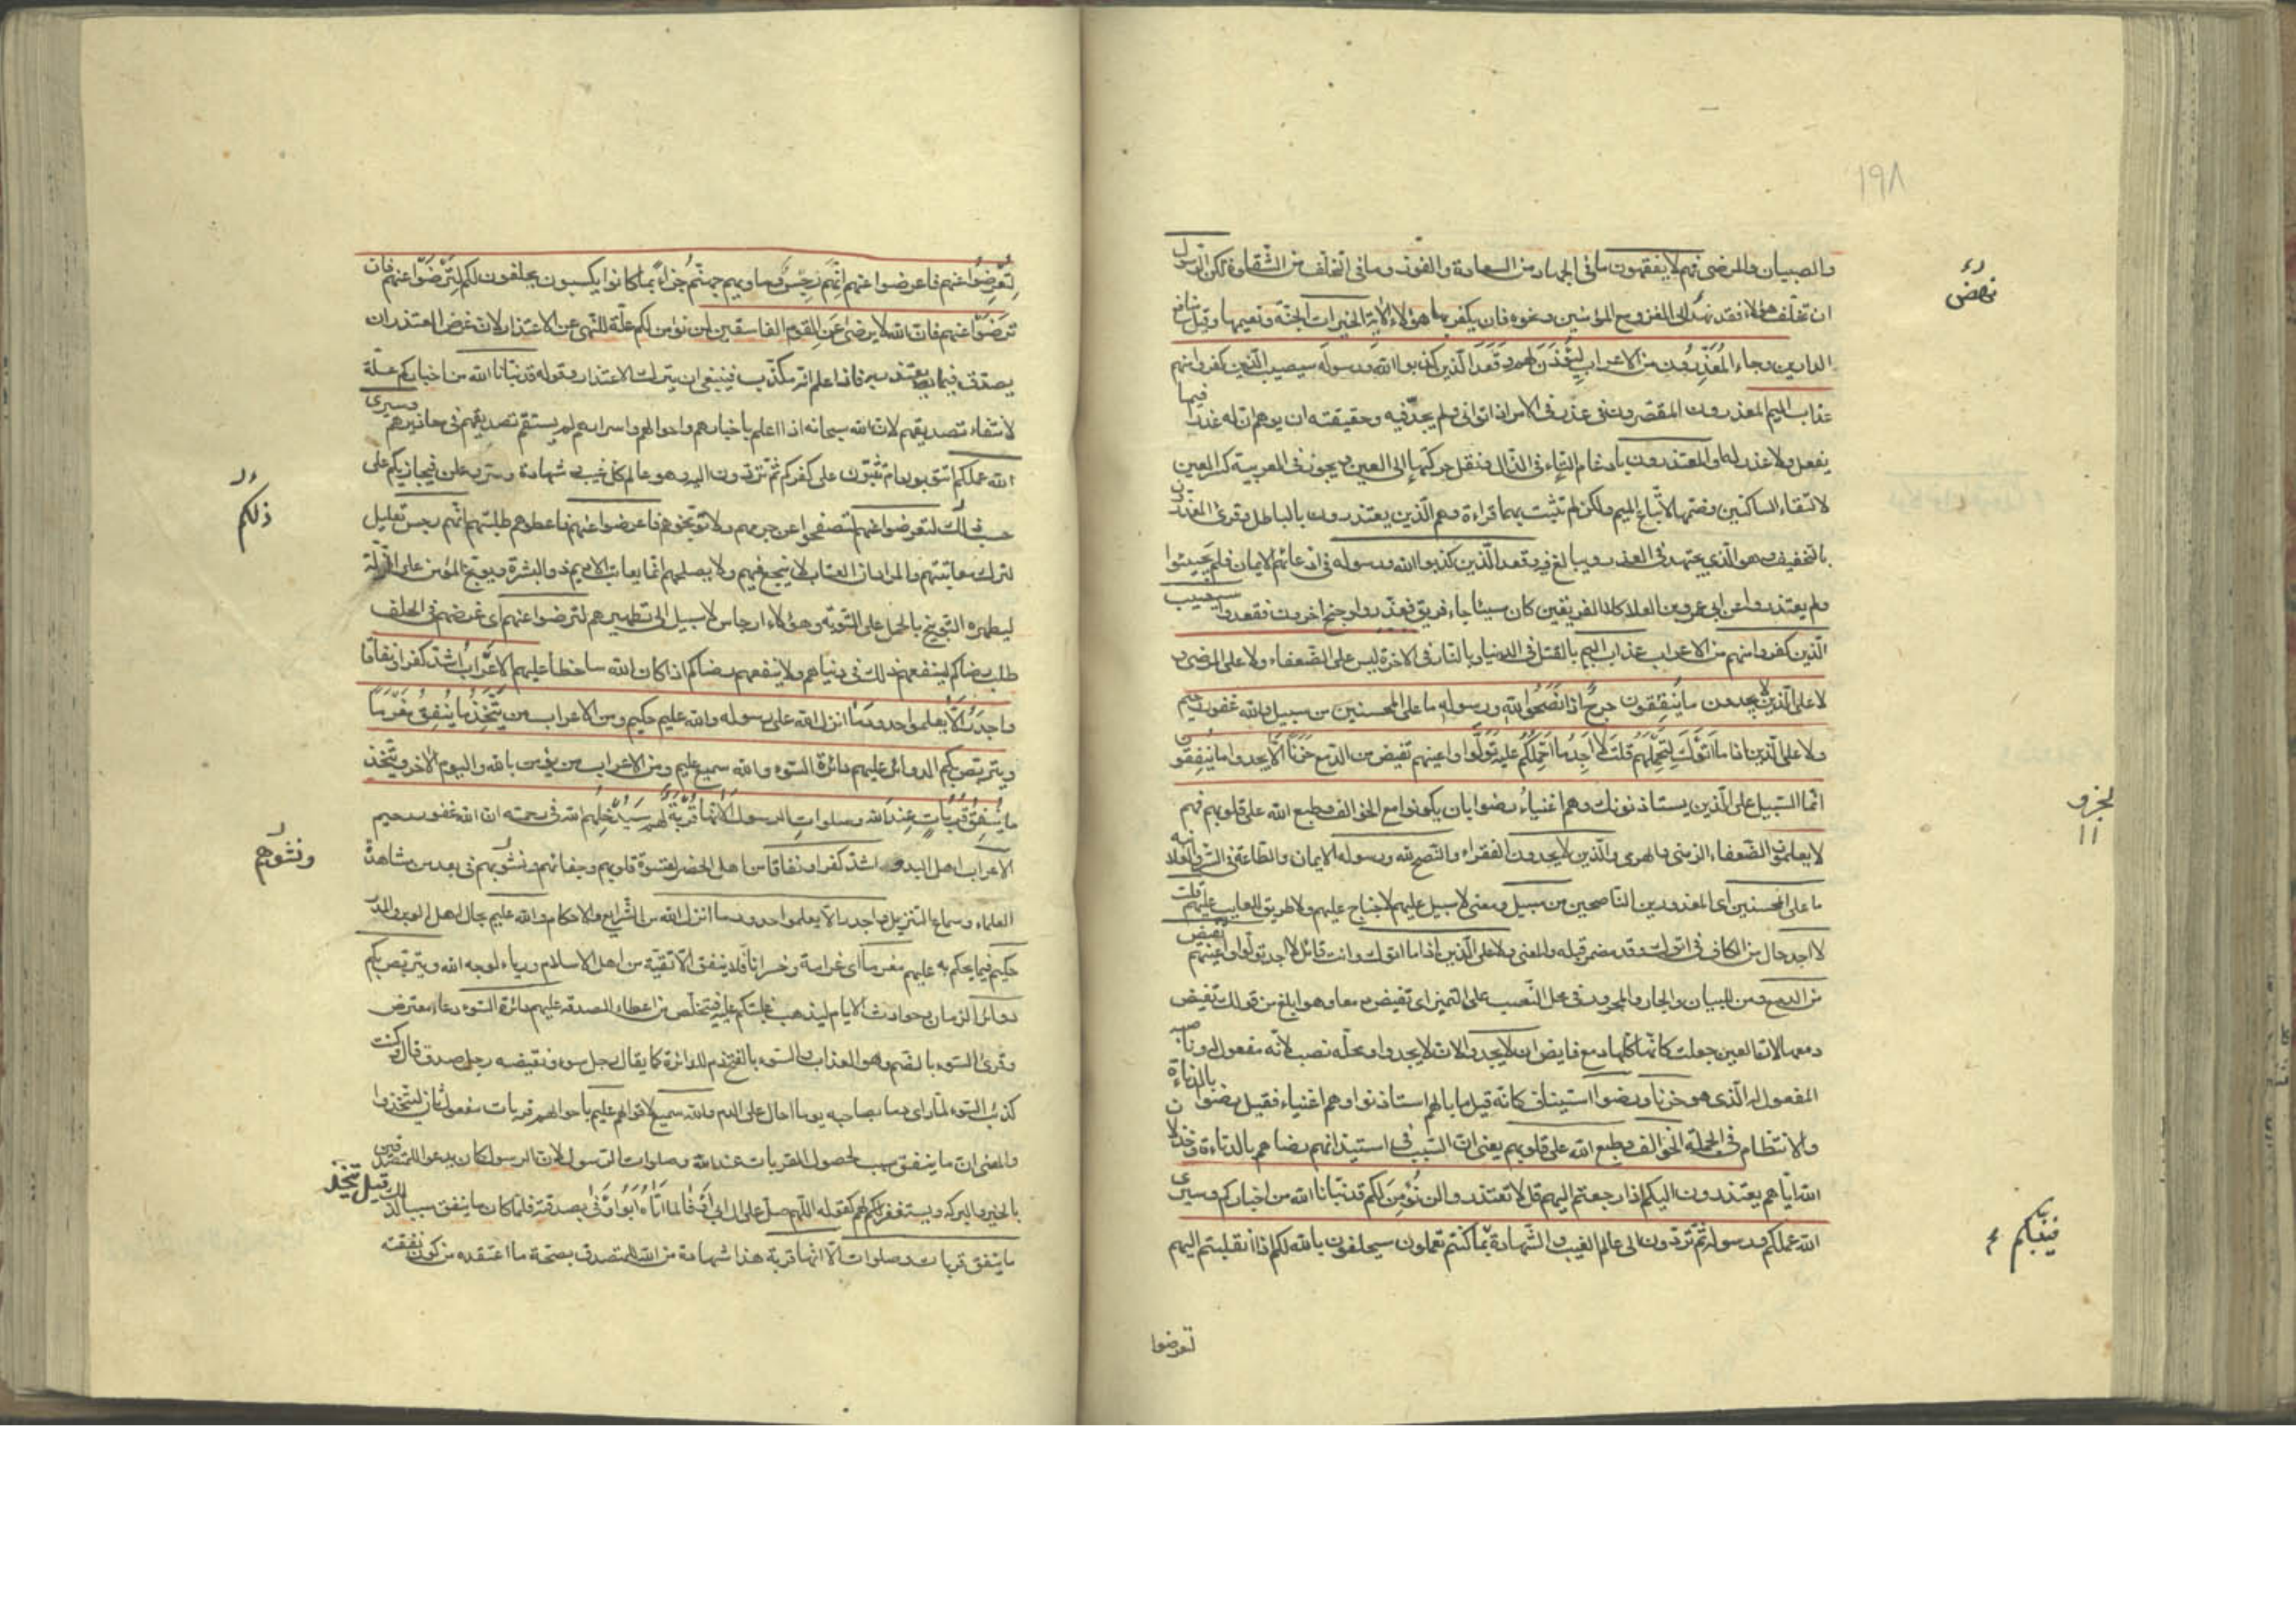 ١٩٨
والصبيان والمرضى فهم لا يفقهون ما فى الجهاد من السعادة والفوز وما فى التخلف من الشقاوة لكن الرسول
ان تخلف هؤلاء فقد نهد الى الغزو مع المؤمنين ونحوه فان يكفر بها هؤلاء الآية الخيرات الجنة ونعيمها وقيل منافع
الدارين وجاء المُعَذِّرُون من الاعراب لِيُؤذَن لهم وقَعَدَ الّذين كذبوا الله ورسوله سيصيب الّذين كفروا منهم
عذاب اليم المعذرون المقصرون من عذر فى الامر اذا توانى ولم يجدّ فيه وحقيقته ان يوهم ان له عذرا فيما
يفعل ولا عذر له او المعتذرون بادغام التاء فى الذال ونقل حركتها إلى العين ويجوز فى العربية كسر العين
لالتقاء الساكنين وضمها لاتباع الميم ولكن لم تثبت بهما قراءة وهم الّذين يعتذرون بالباطل وقرئ المعذرون
بالتخفيف وهو الّذي يجتهد فى العذر ويبالغ فيه وقعد الّذين كذبوا الله ورسوله فى ادعائهم الايمان فلم يجيئوا
ولم يعتذروا عن ابى عمرو بن العلا كلا الفريقين كان سيئا جاء فريق فعذروا وجنح اخرون فقعدوا سيصيب
الّذين كفروا منهم من الاعراب عذاب اليم بالقتل فى الدنيا وبالنار فى الاخرة ليس على الضعفاء ولا على المرضى و
لا على الّذين لا يجدون ما يُنفِقُون حرجٌ اذا نَصَحُوا لله ورسوله ما على المحسنين من سبيل والله غفور رحيم
ولا على الّذين اذا ما اتوك لتحملهم قلت لا اجد ما احملكم عليه تولّوا واعينهم تفيض من الدمع حَزَنًا الّا يجدوا ما يُنفِقون
انّما السّبيل على الّذين يستأذنونك وهم اغنياءُ رضوا بان يكونوا مع الخوالف وطبع الله على قلوبهم فهم
لا يعلمون الضّعفاء الزمنى والهرمى والّذين لا يجدون الفقراء والنّصح لله ورسوله الايمان والطاعة فى السر والعلانية
ما على المحسنين اى المعذورين الناصحين من سبيل ومعنى لا سبيل عليهم لا جناح عليهم ولا طريق للعايب عليهم قلت
لا اجد حال من الكاف فى اتوك وقد مضمر قبله والمعنى ولا على الّذين اذا ما اتوك وانت قائل لا اجد تولّوا واعينهم تفيض
من الدمع ومن للبيان والجار والمجرور فى محل النّصب على التمييز اى تفيض دمعا وهو ابلغ من قولك تفيض
دمعها لان العين جعلت كانّها كلها دمع فايض ان لا يجدوا لان لا يجدوا ومحلّه نصب لانّه مفعول له وناصبه
المفعول له الّذى هو حزنا ورضوا استيناف كانّه قيل ما بالهم استأذنوا وهم اغنياء فقيل رضوا بالدناءة
والانتظام فى جملة الخوالف وطبع الله على قلوبهم يعنى ان السّبب فى استيذانهم رضاهم بالدناءة وخذلان
الله ايّاهم يعتذرون اليكم اذا رجعتم اليهم قل لا تعتذروا لن نُؤمِنَ لكم قد نبّأنا الله من اخباركم وسيرى
الله عملكم ورسوله ثم تردّون الى عالم الغيب والشّهادة بما كنتم تعملون سيحلفون بالله لكم اذا انقلبتم اليهم
تعرضوا
نهض
الجزو
١١
فينبّئكم
لِتُعرِضُوا عنهم فاعرضوا عنهم انّهم رجسٌ وماويهم جهنّم جزاءً بما كانوا يكسبون يحلفون لكم لِتَرْضَوْا عنهم فان
ترضَوا عنهم فان الله لا يرضى عَنِ القوم الفاسقين لن نؤمن لكم علّة للنّهى عن الاعتذار لان غرض المعتذر ان
يصدق فيما يعتذر به فاذا علم انّه مكذّب فينبغى ان يترك الاعتذار وقوله قد نبّأنا الله من اخباركم علّة
لانتفاء تصديقهم لان الله سبحانه اذا اعلم باخبارهم واحوالهم واسرارهم لم يستقم تصديقهم فى معاذيرهم وسيرى
الله عملكم اتتوبون ام تثبّتون على كفركم ثمّ تردّون اليه وهو عالم كل غيب وشهادة وسرّ وعلن فيجازيكم على
حسب ذلك لتعرضوا عنهم لتصفحوا عن جرمهم ولا توبّخوهم فاعرضوا عنهم فاعطوهم طلبتهم انّهم رجس تعليل
لترك معاتبتهم والمراد ان العتاب لا ينجع فيهم ولا يصلحهم انّما يعاتب الاديم ذو البشرة ويوبّخ المؤمن على الزّلّة
ليطهره التوبيخ بالحمل على التّوبة وهؤلاء ارجاس لا سبيل الى تطهيرهم لترضوا عنهم اى غرضهم فى الحلف
طلب رضاكم لينفعهم ذلك فى دنياهم ولا ينفعهم رضاكم اذا كان الله ساخطا عليهم الاعرابُ اشدّ كفرا ونفاقا
واجدرُ الّا يعلموا حدود ما انزل الله على رسوله والله عليم حكيم ومن الاعراب من يتّخِذُ ما يُنفِقُ مَغرَمًا
ويتربّص بكم الدوائر عليهم دائرة السّوء والله سميع عليم ومن الاعراب من يؤمن بالله واليوم الاخر ويتّخذ
ما يُنفِقُ قُرُباتٍ عِندَ الله وصلواتِ الرسول الا انّها قُربةٌ لهم سَيُدخِلُهم الله فى رحمته ان الله غفور رحيم
الاعراب اهل البدو اشدّ كفرا ونفاقا من اهل الحضر لقسوة قلوبهم وجفائهم ونشوّهم فى بعد من مشاهدة
العلماء وسماع التنزيل واجدر الّا يعلموا حدود ما انزل الله من الشّرايع والاحكام والله عليم بحال اهل الوبر والمدر
حكيم فيما يحكم به عليهم مغرما اى غرامة وخسرانا فلا ينفق الّا تقيّة من اهل الاسلام ورياء لا لوجه الله ويتربّص بكم
دوائر الزمان وحوادث الايام ليذهب غلبتكم عليه فيتخلّص من اعطاء الصدقة عليهم دائرة السّوء دعاء معترض
وقرئ السّوء بالضم وهو العذاب والسّوء بالفتح ذم للدائرة كما يقال رجل سوء ونقيضه رجل صدق قال وكنت
كذئب السّوء لمّا رأى دما بصاحبه يوما احال على الدم والله سميع لاقوالهم عليم باحوالهم قربات مفعول ثان ليتّخذوا
والمعنى ان ما ينفق سبب لحصول القربات عند الله وصلوات الرّسول لان الرسول كان يدعو للمتصدّقين
بالخير والبركة ويستغفر لهم كقوله اللّهم صلّ على ال ابى اوفى لما اتاه ابو اوفى بصدقته فلمّا كان ما ينفق سببا لذلك قيل يتّخذ
ما ينفق قربات وصلوات الّا انّها قربة هذا شهادة من الله للمتصدق بصحّة ما اعتقده من كون نفقته
ذلكم
ونشوّهم